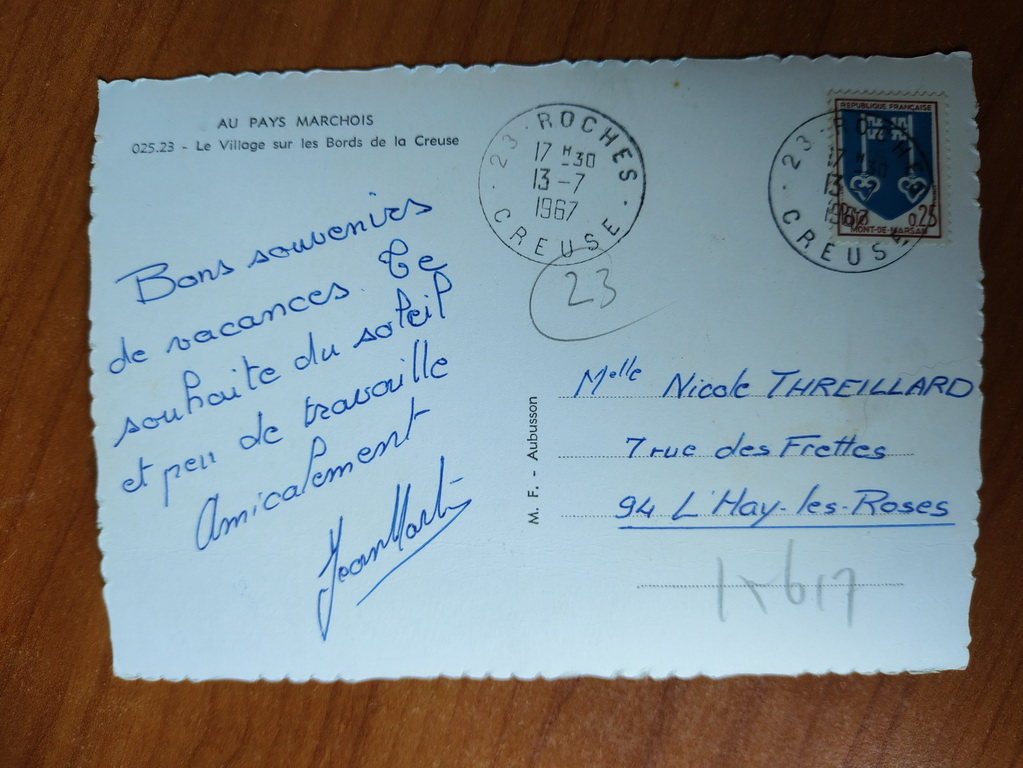 AU PAYS MARCHOIS
025.23 - Le Village sur les Bords de la Creuse
Bons souvenirs
de vacances. Te
souhaite du soleil
et peu de travaille
Amicalement
Jean Martin
23 · ROCHES
17 H 30
13 - 7
1967
CREUSE
23
23 - ROCHES
17 H 30
13
1967
CREUSE
REPUBLIQUE FRANÇAISE
0,25
MONT-DE-MARSAN
M. F. - Aubusson
Melle Nicole THREILLARD
7 rue des Frettes
94 L'Hay-les-Roses